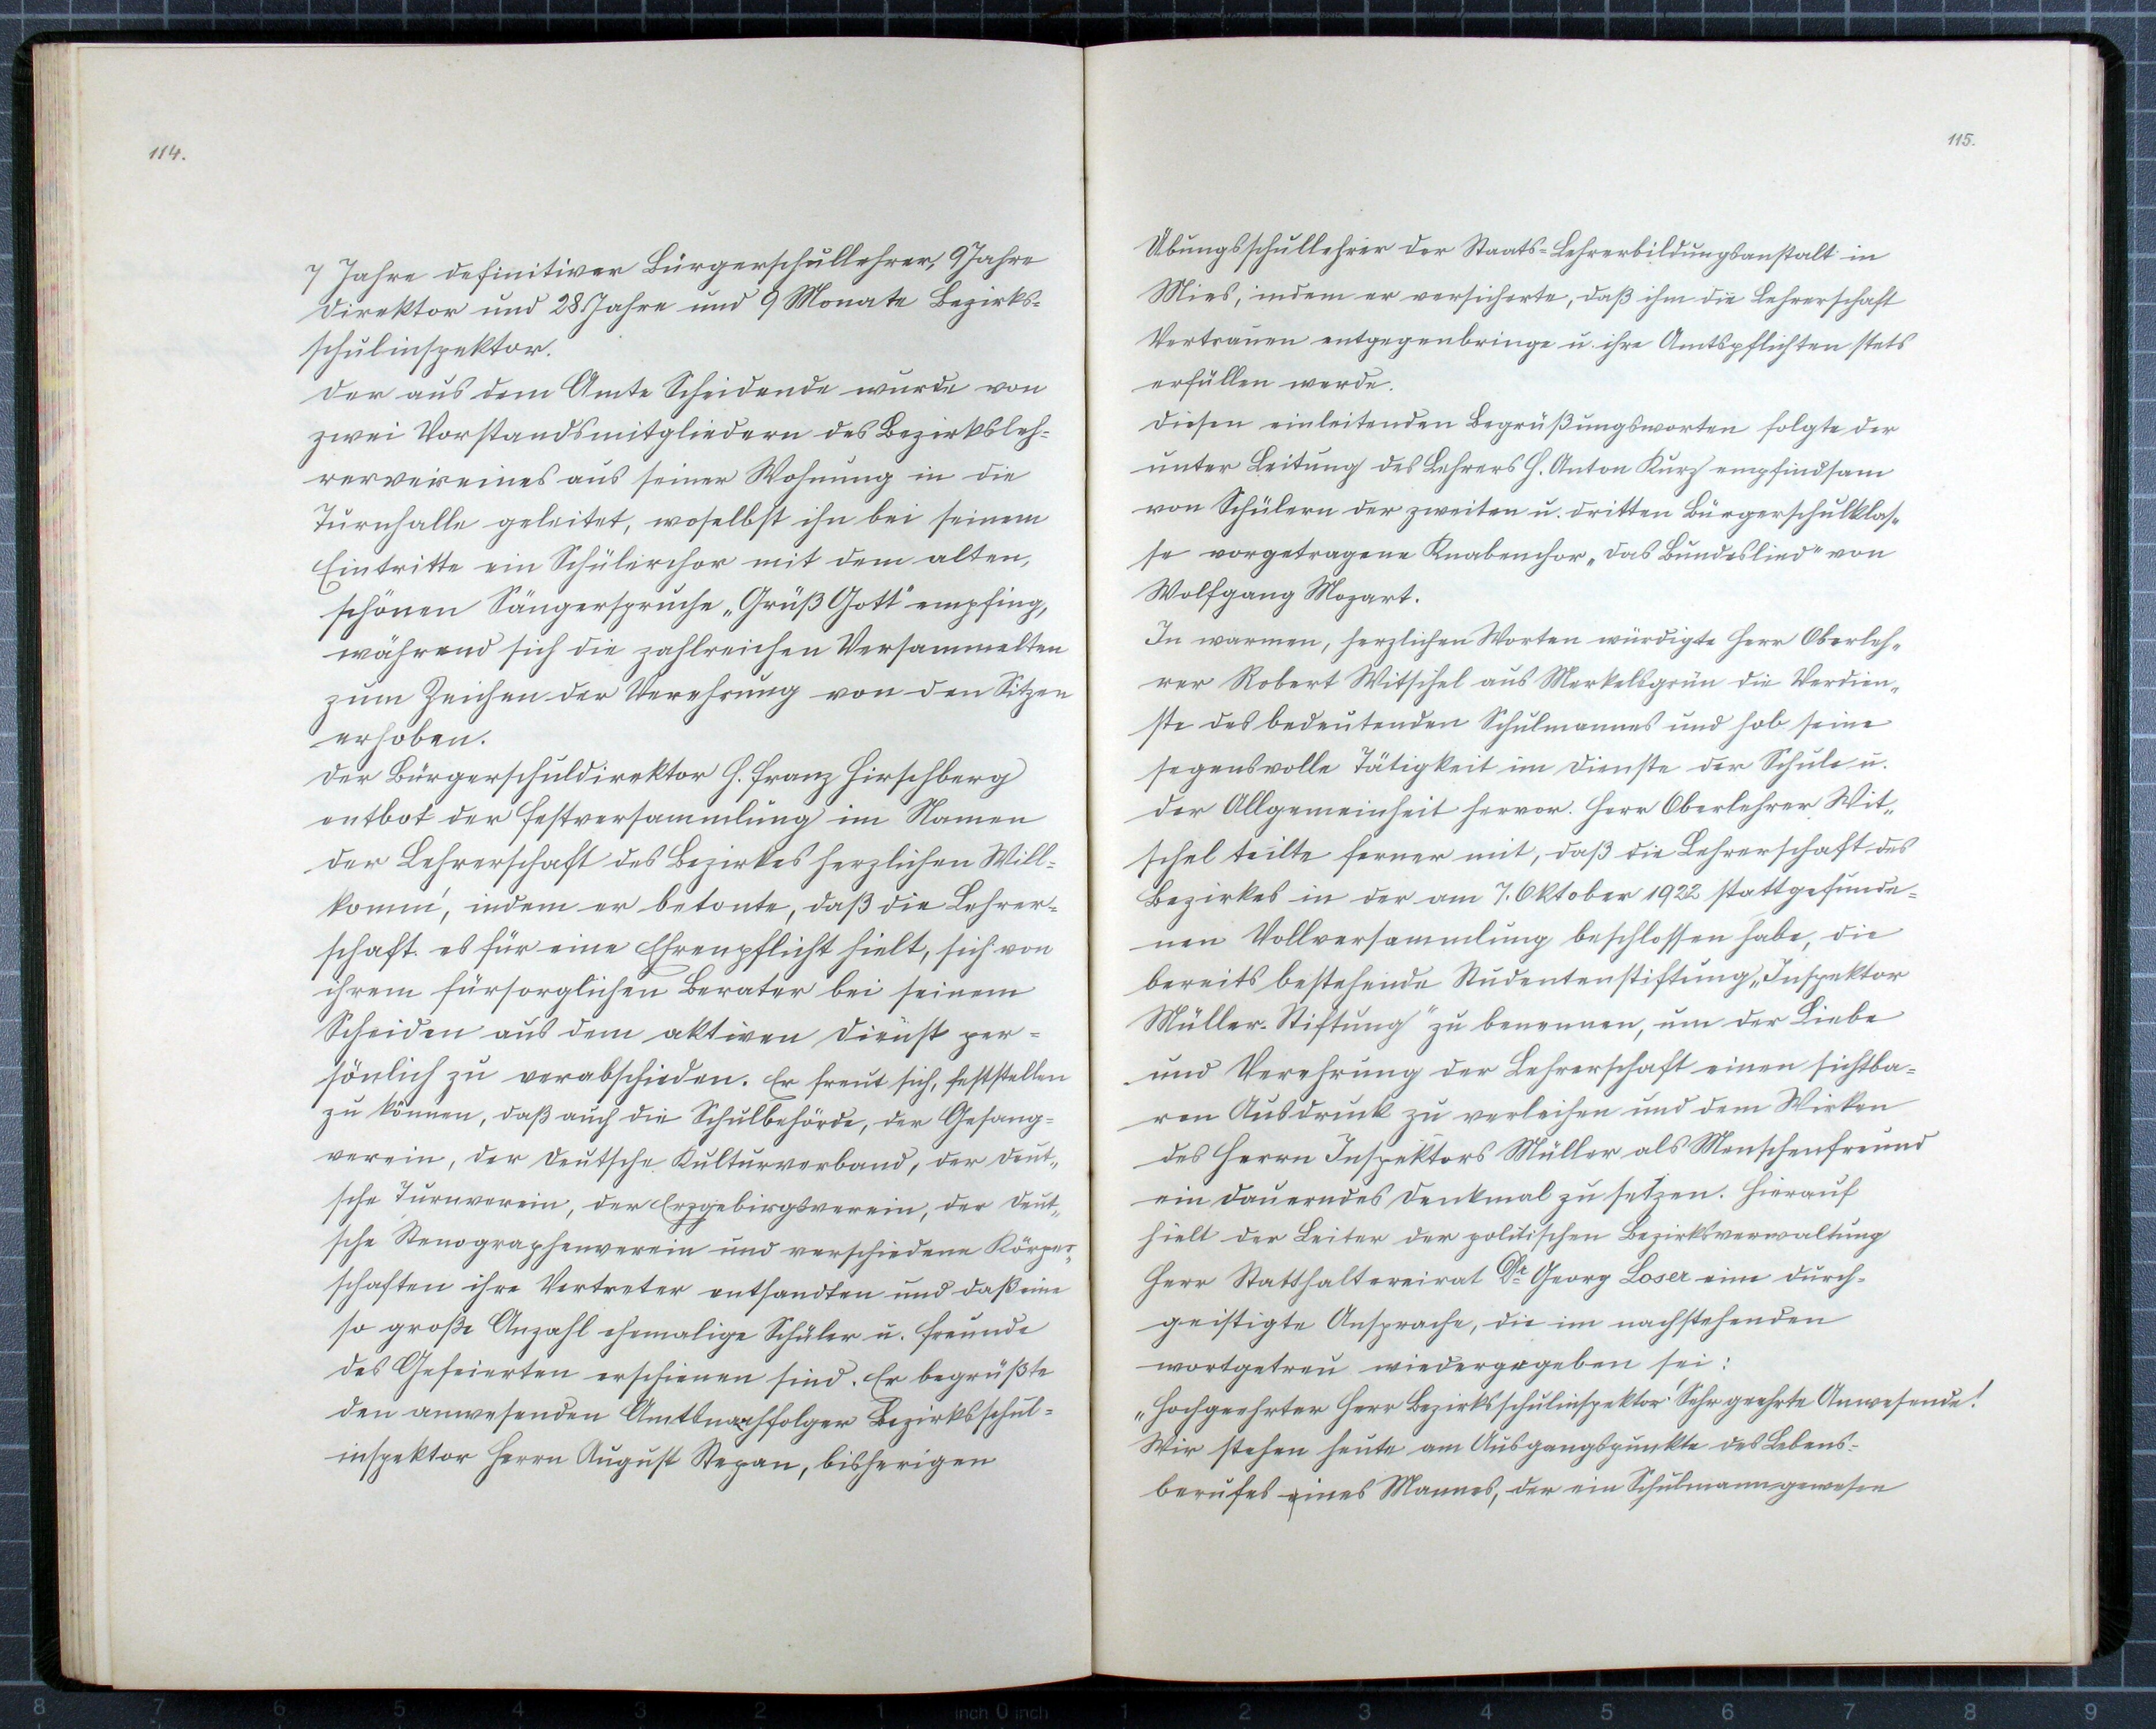 114.
7 Jahre definitiver Bürgerschullehrer, 9 Jahre
Direktor und 28 Jahre und 9 Monate Bezirks-
schulinspektor.
Der aus dem Amte Scheidende wurde von
zwei Vorstandsmitgliedern des Bezirksleh-
rervereines aus seiner Wohnung in die
Turnhalle geleitet, woselbst ihn bei seinem
Eintritte ein Schülerchor mit dem alten,
schönen Sängerspruche „Grüß Gott" empfing,
während sich die zahlreichen Versammelten
zum Zeichen der Verehrung von den Sitzen
erhoben.
Der Bürgerschuldirektor H. Franz Hirschberg
entbot der Festversammlung im Namen
der Lehrerschaft des Bezirkes herzlichen Will-
komm', indem er betonte, daß die Lehrer-
schaft es für eine Ehrenpflicht hielt, sich von
ihrem fürsorglichen Berater bei seinem
Scheiden aus dem aktiven Dienst per-
sönlich zu verabschieden. Er freut sich, feststellen
zu können, daß auch die Schulbehörde, der Gesang-
verein, der Deutsche Kulturverband, der Deut-
sche Turnverein, der Erzgebirgsverein, der Deut-
sche Stenographenverein und verschiedene Körper-
schaften ihre Vertreter entsandten und daß eine
so große Anzahl ehemalige Schüler u. Freunde
des Gefeierten erschienen sind. Er begrüßte
den anwesenden Amtsnachfolger Bezirksschul-
inspektor Herrn August Stepan, bisherigen
115.
Übungsschullehrer der Staats-Lehrerbildungsanstalt in
Mies, indem er versicherte, daß ihm die Lehrerschaft
Vertrauen entgegenbringe u. ihre Amtspflichten stets
erfüllen werde.
Diesen einleitenden Begrüßungsworten folgte der
unter Leitung des Lehrers H. Anton Kurz empfindsam
von Schülern der zweiten u. dritten Bürgerschulklas-
se vorgetragene Knabenchor „Das Bundeslied" von
Wolfgang Mozart.
In warmen, herzlichen Worten würdigte Herr Oberleh-
rer Robert Witschel aus Merkelsgrün die Verdien-
ste des bedeutenden Schulmannes und hob seine
segensvolle Tätigkeit im Dienste der Schule u.
der Allgemeinheit hervor. Herr Oberlehrer Wit-
schel teilte ferner mit, daß die Lehrerschaft des
Bezirkes in der am 7. Oktober 1922 stattgefunde-
nen Vollversammlung beschlossen habe, die
bereits bestehende Studentenstiftung „Inspektor
Müller-Stiftung" zu benennen, um der Liebe
und Verehrung der Lehrerschaft einen sichtba-
ren Ausdruck zu verleihen und dem Wirken
des Herrn Inspektors Müller als Menschenfreund
ein dauerndes Denkmal zu setzen. Hierauf
hielt der Leiter der politischen Bezirksverwaltung
Herr Statthaltereirat Dr Georg Loser eine durch-
geistigte Ansprache, die im nachstehenden
wortgetreu wiedergegeben sei:
„Hochgeehrter Herr Bezirksschulinspektor! Sehr geehrte Anwesende!
Wir stehen heute am Ausgangspunkte des Lebens-
berufes eines Mannes, der ein Schulmann gewesen
8 7 6 5 4 3 2 1 inch 0 inch 1 2 3 4 5 6 7 8 9